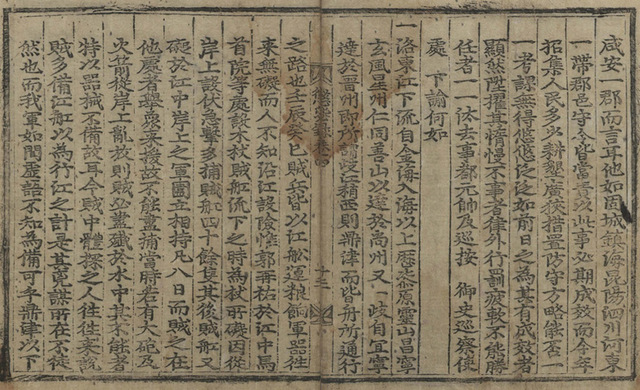 咸安一郡而言耳他如固城鎭海昆陽泗川河東
一帶郡邑守令皆當責以此事必期成效而今年
招集人民多以耕墾廣狹措置防守方略集否一
一考課無得悠悠泛泛如前日之為其有成效者
顯然陞擢其惰慢不事者律外行罰疲軟不能勝
任者一一汰去事都元帥及巡按 御史巡察使
處 下諭何如
一洛東江下流自金海入海以上歷柒原靈山昌寧
玄風星州仁同善山以達於尙州又一岐自宜寧
達於晉州卽所謂岐江稍西則鼎津而皆舟所通行
懲毖錄卷 十三
之路也壬辰癸巳賊兵皆以江船運粮餉軍器往
來無礙而人不知沿江設險惟郭再祐於江中馬
首院等處設木杙賊船流下之時為杙所礙因從
岸上設伏急擊多捕賊船四十餘隻其後賊船又
礙於江中岸上之軍圍立相持凡八日而賊之在
他處者擧衆來援故不能盡捕當時若有大砲及
火箭從岸上亂放則賊必盡殲於水中其不能者
特以器械不備故耳今賊中體探之人往往來說
賊多備江船以為行江之計是其兇謀所在不徒
然也而我軍如聞虛語不知為備可乎鼎津以下